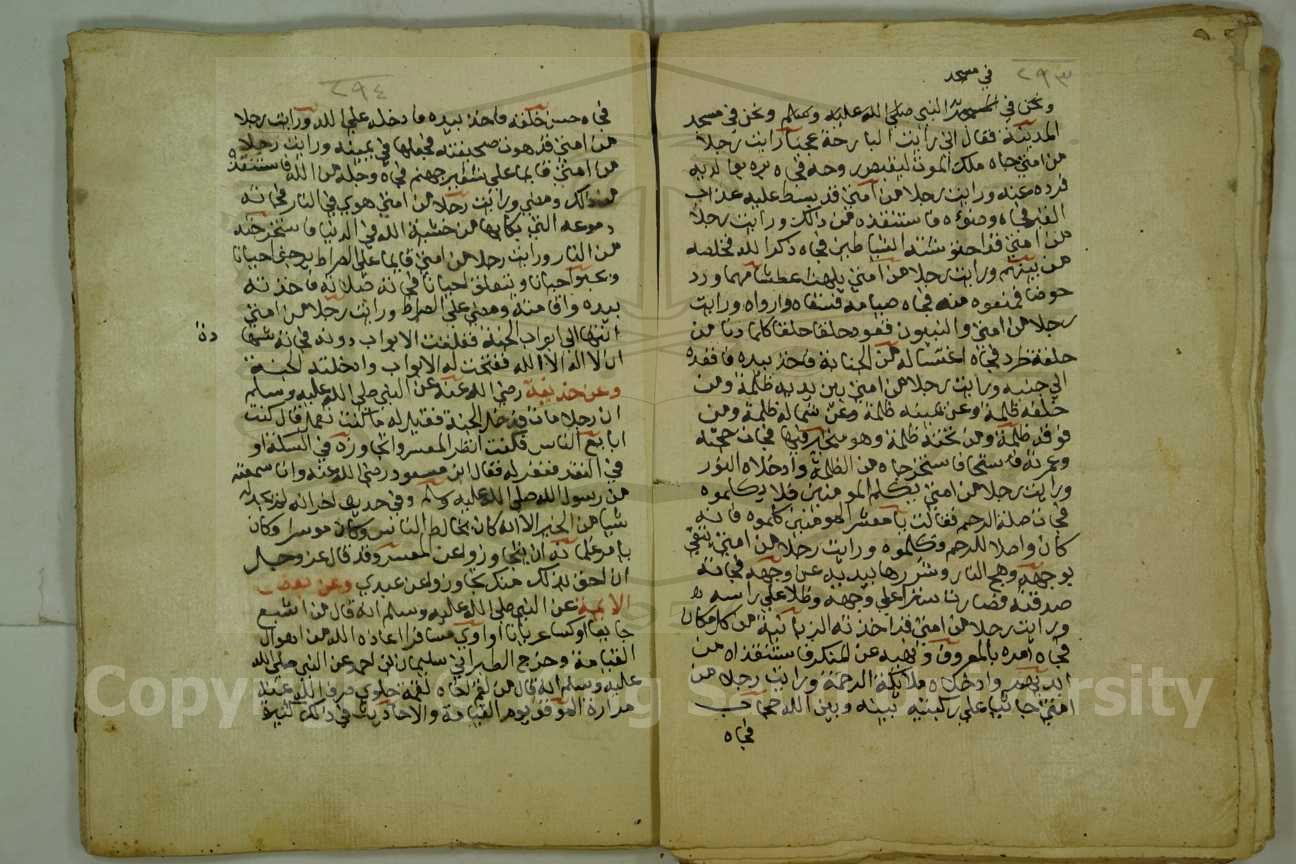 ٢٩٣
في مسجد
ونحن في النبي صلى الله عليه وسلم ونحن في مسجد
المدينة فقال اني رايت البارحة عجبا رايت رجلا
من امتي جاه ملك الموت ليقبض روحه فجاه بره بوالديه
فرده عنه ورايت رجلا من امتي قد بسط عليه عذاب
القبر فجاه وضوءه فاستنقذه من ذالك ورايت رجلا
من امتي قد احتوشته الشياطين فجاه ذكر الله فخلصه
من بينهم ورايت رجلا من امتي يلهث عطشا مهما ورد
حوضا منه فجاه صيامه فسقاه وارواه ورايت
رجلا من امتي والنبيون قعود حلقا حلقا كلما دنا من
حلقة طرد فجاه اغتساله من الجنابة فاخذ بيده فاقعده
الي جنبه ورايت رجلا من امتي بين يديه ظلمة ومن
خلفه ظلمة وعن يمينه ظلمة وعن شماله ظلمة ومن
فوقه ظلمة ومن تحته ظلمة وهو متحير فيها فجات حجته
وعمرته فاستخرجاه من الظلمة وادخلاه النور
ورايت رجلا من امتي يكلم المومنين فلا يكلموه
فجات صلة الرحم فقالت يا معشر المومنين كلموه فانه
كان واصلا للرحم وكلموه ورايت رجلا من امتي يتقي
بوجهه وهج النار وشررها بيديه عن وجهه فجاته
صدقته فصارت سترا علي وجهه وظلا علي راسه
ورايت رجلا من امتي قد اخذته الزبانية من كل مكان
فجاه امره بالمعروف ونهيه عن المنكر فاستنقذاه من
ايديهم وادخلاه ملائكة الرحمة ورايت رجلا من
امتي جاثيا علي ركبتيه بينه وبين الله حجاب
فجاه
٢٩٤
فجاه حسن خلقه فاخذ بيده فادخله علي الله ورايت رجلا
من امتي قد هوت صحيفته فجعلها في يمينه ورايت رجلا
من امتي قايما علي شفير جهنم فجاه وجله من الله فاستنقذه
من ذلك ومضي ورايت رجلا من امتي هوي في النار فجاته
دموعه التي بكا بها من خشية الله في الدنيا فاستخرجته
من النار ورايت رجلا من امتي قايما علي الصراط يرجف احيانا
ويحبو احيانا ويتعلق احيانا فجاته صلاته فاخذته
بيده واقامته ومضي علي الصراط ورايت رجلا من امتي
انتها الي ابواب الجنة فغلقت الابواب دونه فجاته شها
دة
ان لا اله الا الله ففتحت له الابواب وادخلته الجنة
وعن حذيفة رضي الله عنه عن النبي صلي الله عليه وسلم
ان رجلا مات فدخل الجنة فقيل له ما كنت تعمل قال كنت
ابايع الناس فكنت انظر المعسر واتجاوزه في السكة او
في النقد فغفر له فقال ابن مسعود رضي الله عنه وانا سمعته
من رسول الله صلى الله عليه وسلم وفي حديث اخر انه لم يكن له
شيا من الخير الا انه كان يخالط الناس وكان موسرا وكان
يامر غلمانه ان يتجاوزوا عن المعسر وقد قال عز وجل
ان احق بذلك منك تجاوزوا عن عبدي وعن بعض
الايمة عن النبي صلى الله عليه وسلم انه قال من اشبع
جايعا او كسا عريانا او اوي مسافرا اعاذه الله من اهوال
القيامة وخرج الطبراني سليمان ابن احمد عن النبي صلي الله
عليه وسلم انه قال من لقم اخاه لقمة حلوي صرف الله عنه
مرارة الموقف يوم القيامة والاحاديث في ذالك كثيرة
Copyright © King Saud University